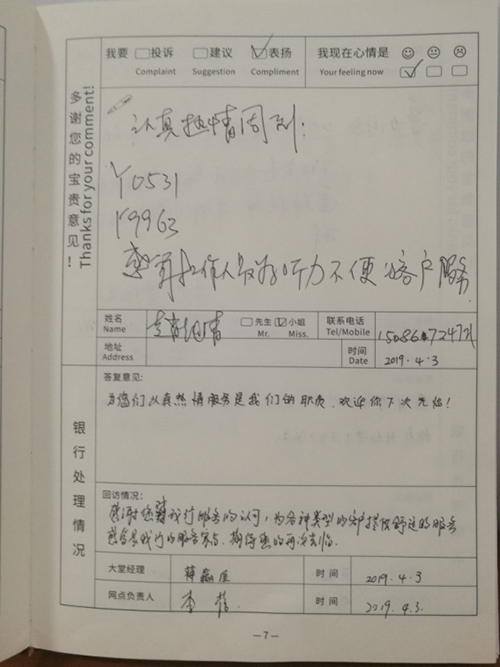 我要 投诉 建议 表扬 我现在心情是
Complaint Suggestion Compliment Your feeling now
多谢您的宝贵意见！
Thanks for your comment!
认真热情周到：
Y0531
Y9963
感谢工作人员为听力不便的客户服务
姓名 先生 小姐 联系电话
Name Mr. Miss. Tel/Mobile
地址 时间
Address Date 2019.4.3
银行处理情况
答复意见:
为您们认真热情服务是我们的职责，欢迎你下次光临！
回访情况:
感谢您对我行服务的认可，为各种类型的客户提供舒适的服务
期待您的再次光临.
大堂经理 时间 2019.4.3
网点负责人 李 时间 2019.4.3.
—7—